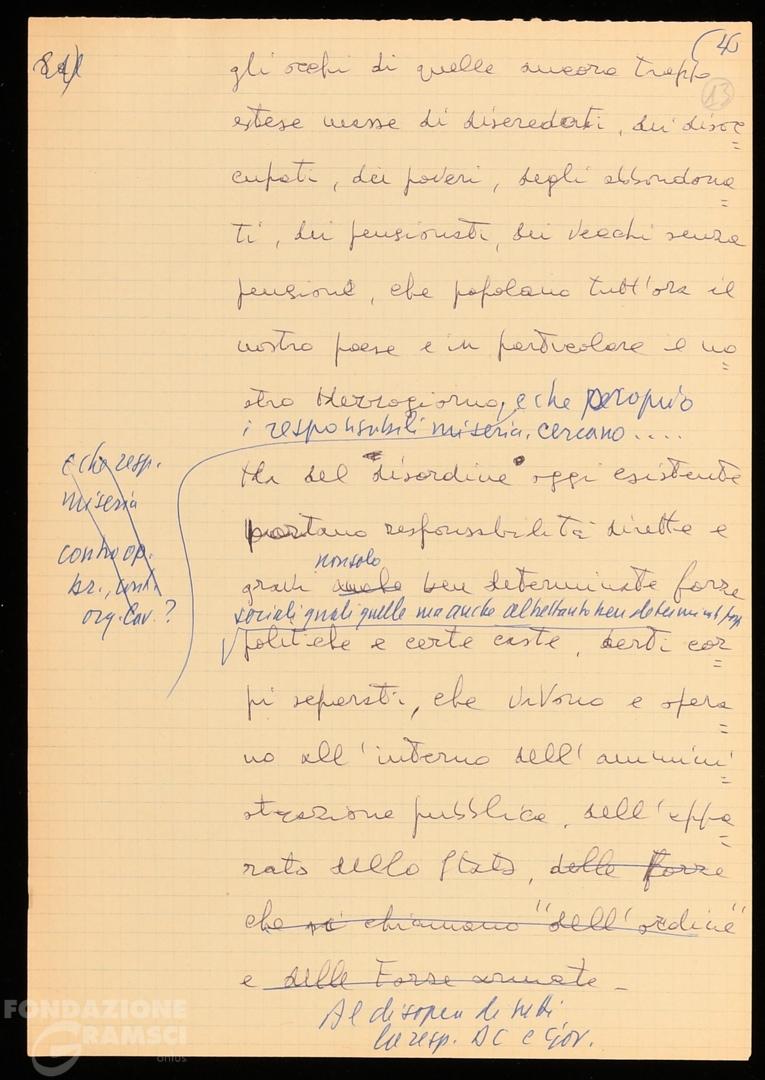 (4)
13
gli occhi di quelle ancora troppo
estese masse di diseredati, dei disoc=
cupati, dei poveri, degli abbandona=
ti, dei pensionati, dei vecchi senza
pensione, che popolano tutt'ora il
nostro paese e in particolare il no=
stro Mezzogiorno, e che proprio
i responsabili miseria. cercano....
e che resp.
miseria
contro op.
br., cont.
org. lav. ?
Ma del "disordine" oggi esistente
portano responsabilità dirette e
gravi non solo ben determinate forze
sociali quali quelle ma anche altrettanto ben determinate
politiche e certe caste, certi cor=
pi separati, che vivono e opera=
no all'interno dell'ammini=
strazione pubblica, dell'appa=
rato dello Stato, delle Forze
che si chiamano "dell'ordine"
e delle Forze armate.
Al disopra di tutti
la resp. DC e Gov.
FONDAZIONE
GRAMSCI
onlus